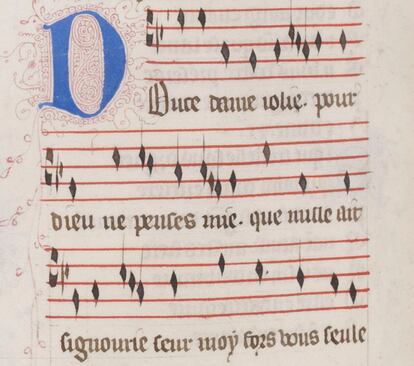 Duce dame iolie. pour
dieu ne penses mie. que nulle ait
signourie seur moy fors vous seule